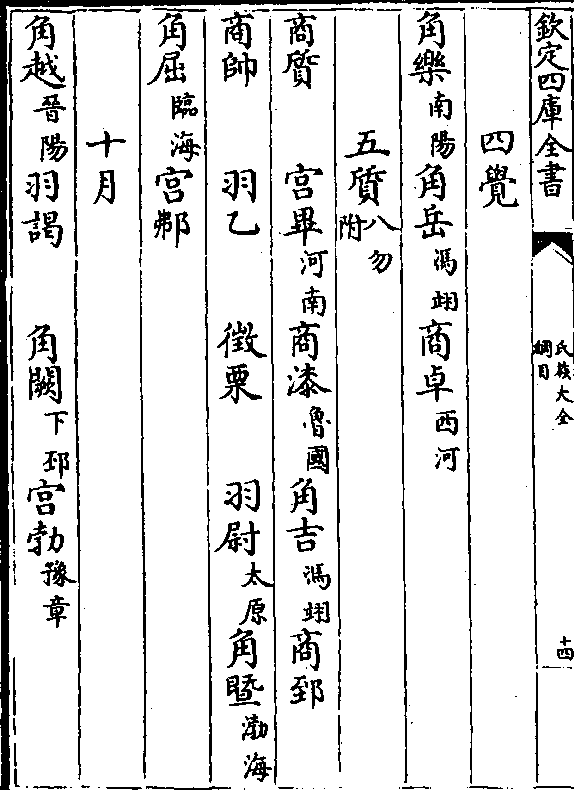 欽定四庫全書
氏族大全
綱目
十四
四覺
角樂南陽角岳馮翊商卓西河
五質八勿附
商質 宮畢河南商漆魯國角吉馮翊商郅
商帥 羽乙 徵栗 羽尉太原角暨渤海
角屈臨海宮郍
十月
角越晉陽羽謁 角闕下邳宮勃豫章